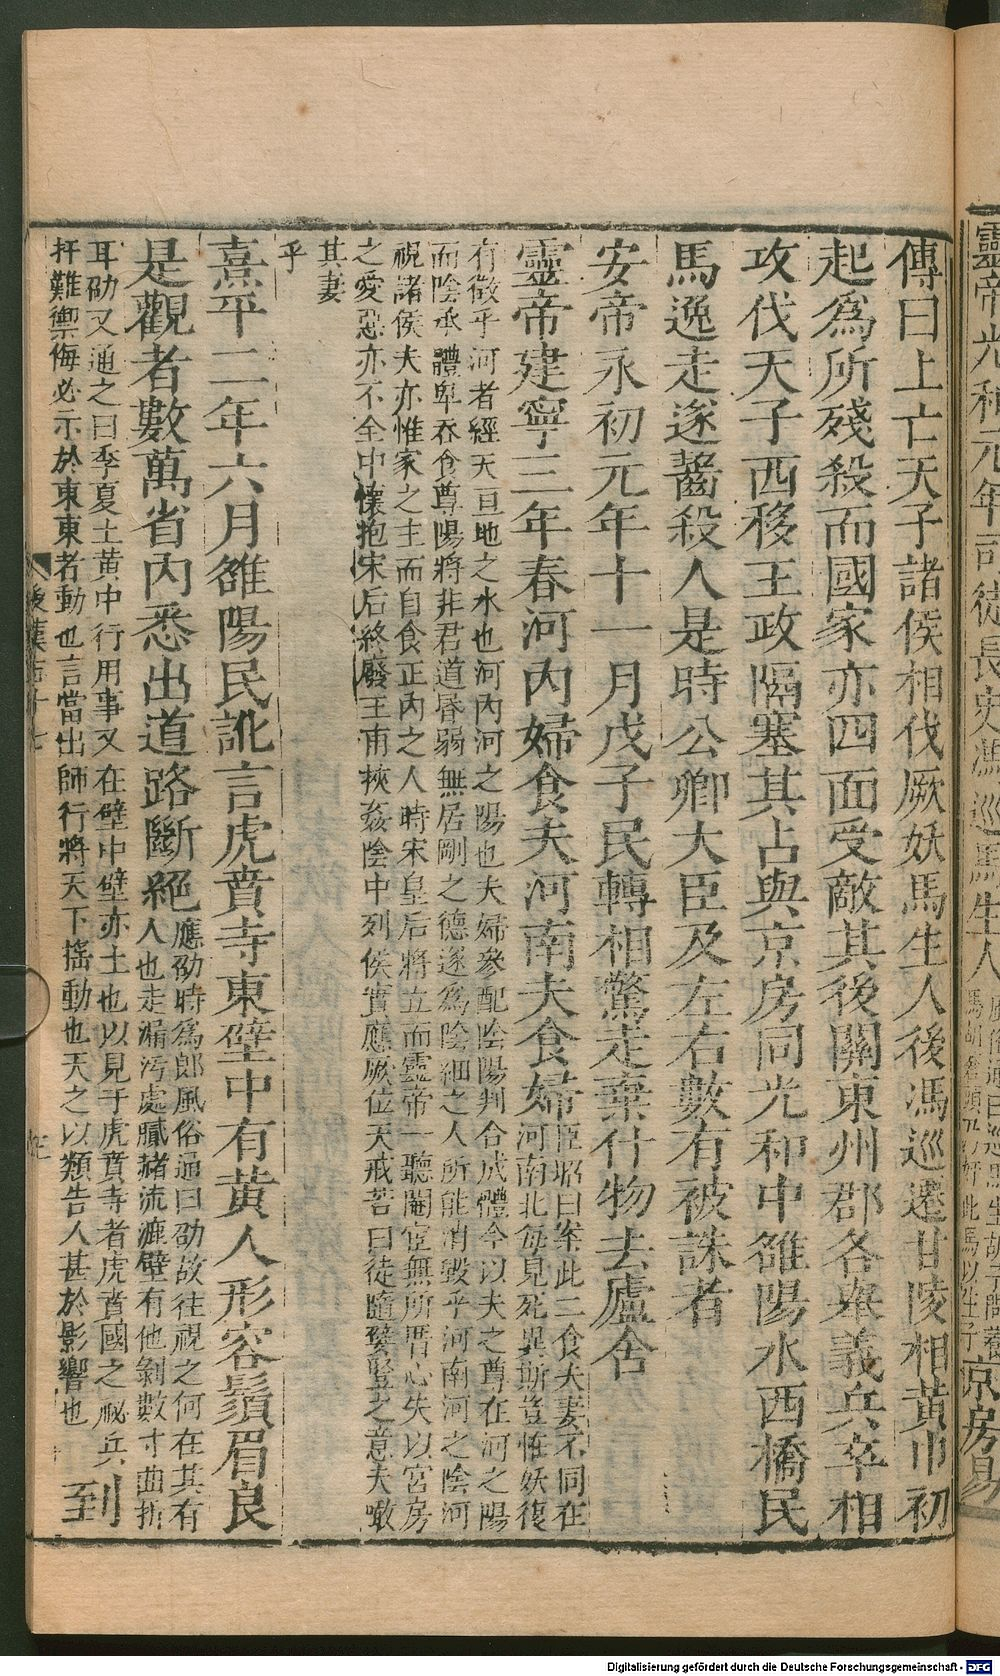 靈帝光和元年司徒長史馮巡馬生人
京房易
傳曰上亡天子諸侯相伐厥妖馬生人後馮巡遷甘陵相黃巾初
起爲所殘殺而國家亦四面受敵其後關東州郡各舉義兵卒相
攻伐天子西移王政隔塞其占與京房同光和中雒陽水西橋民
馬逸走遂齧殺人是時公卿大臣及左右數有被誅者
安帝永初元年十一月戊子民轉相驚走棄什物去廬舍
靈帝建寧三年春河內婦食夫河南夫食婦
臣昭曰案此二食夫妻不同在
河南北每見死異斯豈惟妖復
有徵乎河者經天亘地之水也河內河之陽也夫婦參配陰陽判合成體今以夫之尊在河之陽
而陰承體卑吞食尊陽將非君道昬弱無居剛之德遂爲陰細之人所能消毀乎河南河之陰河
視諸侯夫亦惟家之主而自食正內之人時宋皇后將立而靈帝一聽閹宦無所厝心失以宮房
之愛惡亦不全中懷抱宋后終廢王甫挾姦陰中列侯實應厥位天戒若曰徒隨嬖豎之意夫噉
其妻
乎
熹平二年六月雒陽民訛言虎賁寺東壁中有黃人形容鬚眉良
是觀者數萬省內悉出道路斷絕
應劭時爲郎風俗通曰劭故往視之何在其有
人也走漏汚處膩赭流漉壁有他剝數寸曲折
耳劭又通之曰季夏土黃中行用事又在壁中壁亦土也以見于虎賁寺者虎賁國之祕兵
扞難禦侮必示於東東者動也言當出師行將天下搖動也天之以類告人甚於影響也
到
後漢志十七
Digitalisierung gefördert durch die Deutsche Forschungsgemeinschaft - DFG